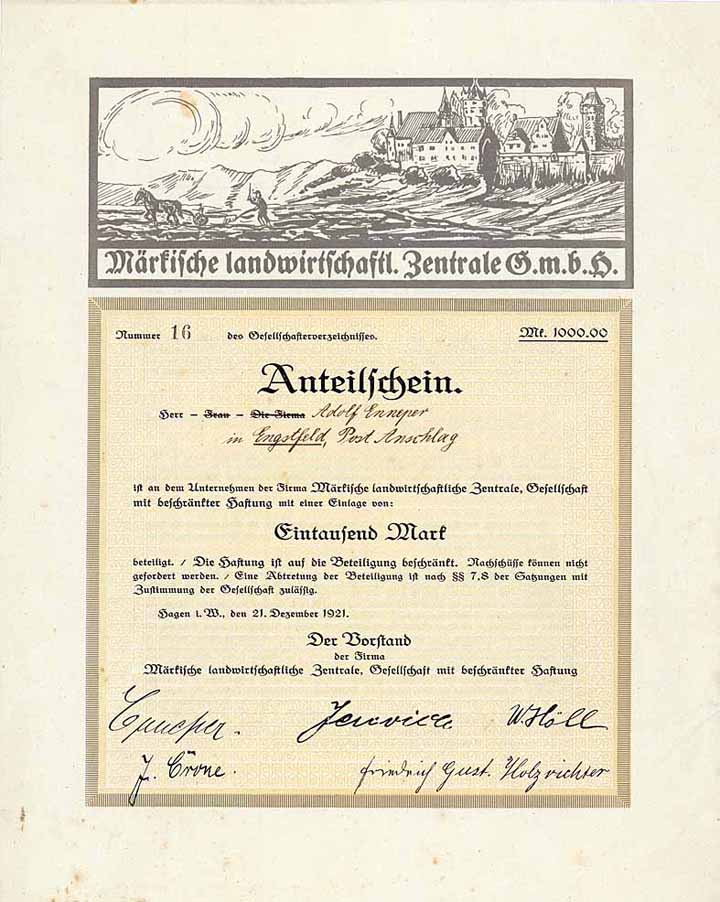 Märkische landwirtschaftl. Zentrale G.m.b.H.
Nummer 16 des Gesellschafterverzeichnisses. Mk. 1000.00
Anteilschein.
Herr – Frau – Die Firma Adolf Enneper
in Engstfeld, Post Anschlag
ist an dem Unternehmen der Firma Märkische landwirtschaftliche Zentrale, Gesellschaft
mit beschränkter Haftung mit einer Einlage von:
Eintausend Mark
beteiligt. / Die Haftung ist auf die Beteiligung beschränkt. Nachschüsse können nicht
gefordert werden. / Eine Abtretung der Beteiligung ist nach §§ 7,8 der Satzungen mit
Zustimmung der Gesellschaft zulässig.
Hagen i. W., den 21. Dezember 1921.
Der Vorstand
der Firma
Märkische landwirtschaftliche Zentrale, Gesellschaft mit beschränkter Haftung
W. Höll
J. Crone. Friedrich Gust. Holzrichter